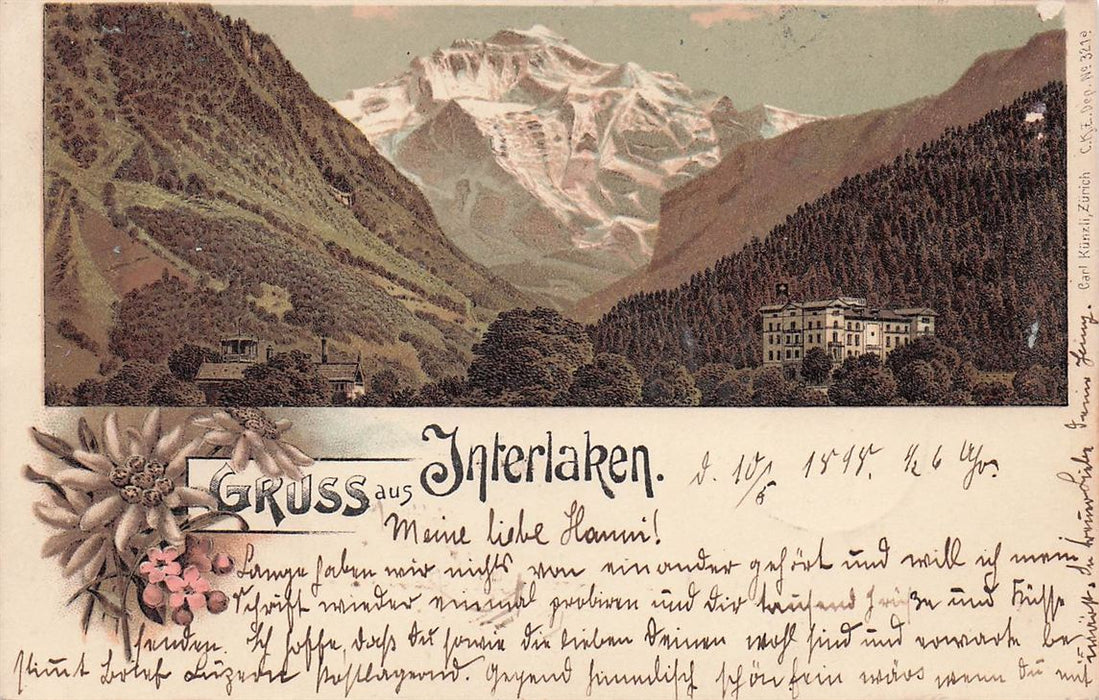 GRUSS aus Interlaken.
d. 10/5 189 ½ 6 Uhr.
Meine liebe Hanni!
Lange haben wir nichts von einander gehört und will ich mein
Schrift wieder einmal probiren und Dir tausend Grüße und Küsse
senden. Ich hoffe, daß Du sowie die lieben Deinen wohl sind und erwarte be
stimmt Brief Luzern Postlagernd. Gegend himmlisch schön fein wärs wenn Du mit
wärst. Deine
Carl Künzli, Zürich C.K.Z. Dep. No 3219